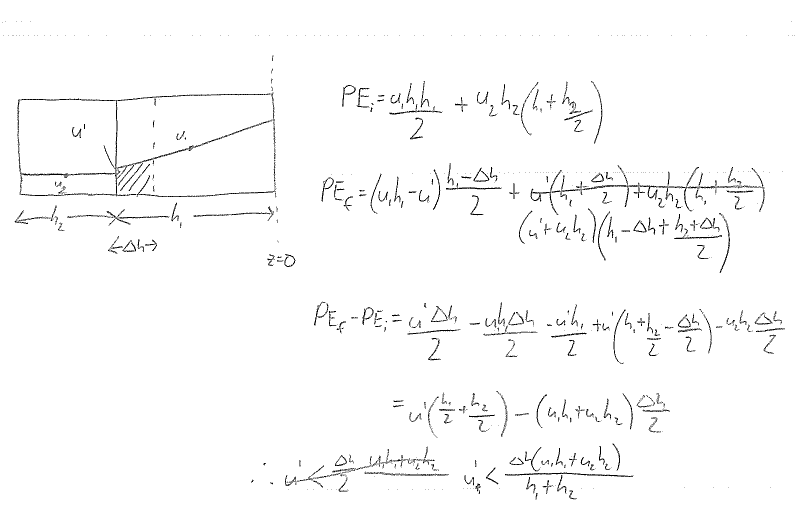 PE_i = u_1h_1h_1/2 + u_2h_2(h_1+h_2/2)
u' u_1
PE_f = (u_1h_1-u')(h_1-Δh)/2 + u'(h_1+Δh/2)+u_2h_2(h_1+h_2/2)
u_2
(u'+u_2h_2)(h_1-Δh+(h_2+Δh)/2)
h_2 h_1
Δh
z=0
PE_f-PE_i = u'Δh/2 - u_1h_1Δh/2 - u'h_1/2 + u'(h_1+h_2/2-Δh/2) - u_2h_2Δh/2
= u'(h_1/2+h_2/2) - (u_1h_1+u_2h_2)Δh/2
∴ u' < Δh/2 u_1h_1+u_2h_2 u' < Δh(u_1h_1+u_2h_2)/(h_1+h_2)